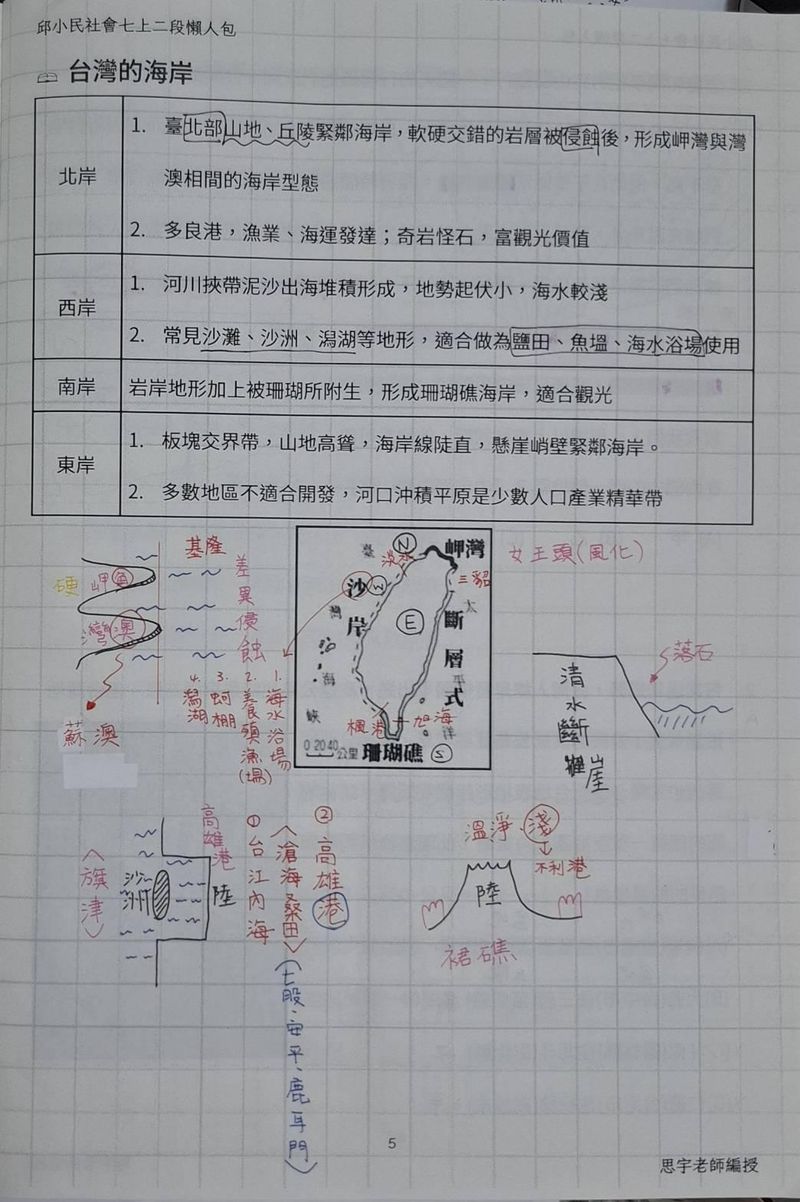 邱小民社會七上二段懶人包
台灣的海岸
北岸
1. 臺北部山地、丘陵緊鄰海岸，軟硬交錯的岩層被侵蝕後，形成岬灣與灣
澳相間的海岸型態
2. 多良港，漁業、海運發達；奇岩怪石，富觀光價值
西岸
1. 河川挾帶泥沙出海堆積形成，地勢起伏小，海水較淺
2. 常見沙灘、沙洲、潟湖等地形，適合做為鹽田、魚塭、海水浴場使用
南岸
岩岸地形加上被珊瑚所附生，形成珊瑚礁海岸，適合觀光
東岸
1. 板塊交界帶，山地高聳，海岸線陡直，懸崖峭壁緊鄰海岸。
2. 多數地區不適合開發，河口沖積平原是少數人口產業精華帶
硬
岬角
灣澳
蘇澳
基隆
差異侵蝕
1. 海水浴場
2. 養殖漁(塭)
3. 蚵棚
4. 潟湖
臺灣海峽
N
岬灣
淡水
三貂
沙岸
W
E
斷層式
太平洋
楓港
旭海
0 20 40 公里
珊瑚礁
S
女王頭(風化)
落石
清水斷崖
高雄港
<旗津>
沙洲
陸
①台江內海
<滄海桑田>
(七股、安平、鹿耳門)
②高雄港
溫淨、淺
不利港
陸
裙礁
5
思宇老師編授